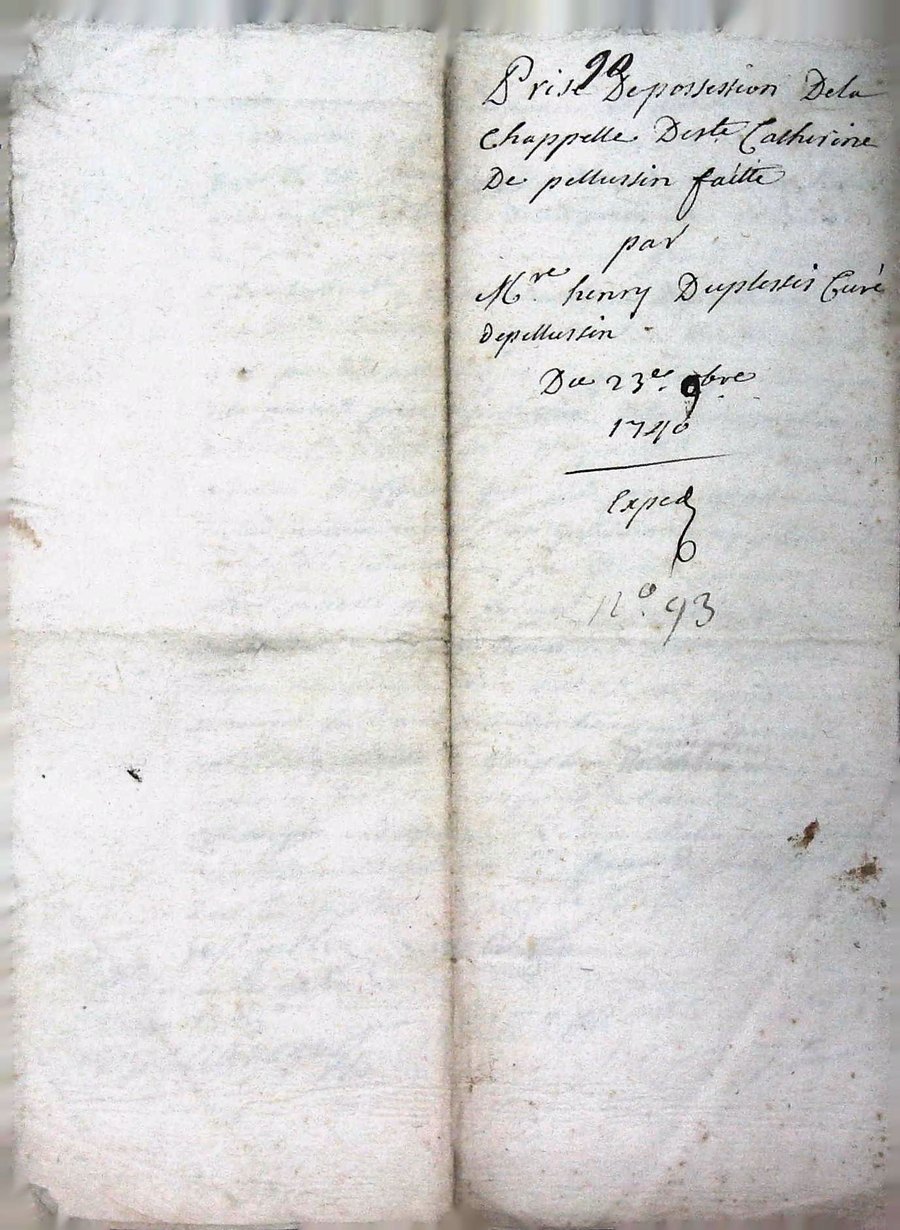 90
Prise Depossession Dela
Chappelle Deste. Catherine
De pellussin faitte
par
Mre. henry Duplessis Curé
depellussin
Du 23e. 9bre
1740
Exped
no. 93